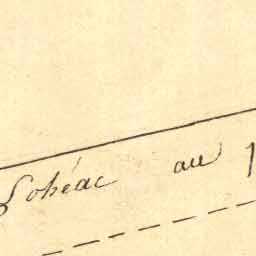 Lohéac au